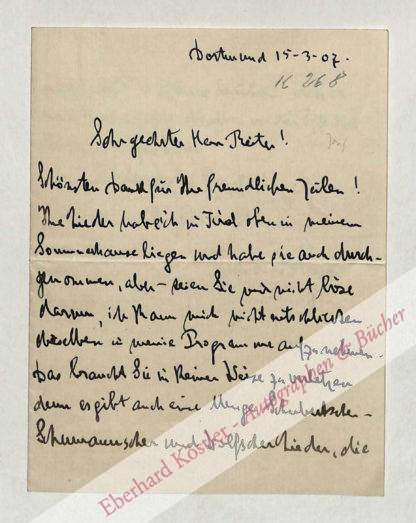 Dortmund 15-3-07.
K 268
Sehr geehrter Herr Reiter!
Jos
Schönsten Dank für Ihre freundlichen Zeilen!
Ihre Lieder habe ich in Tirol oben in meinem
Sommerhause liegen und habe sie auch durch-
genommen, aber – seien Sie mir nicht böse
darum, ich kann mich nicht entschliessen
dieselben in meine Programme aufzunehmen.
Das braucht Sie in keiner Weise zu verletzen
denn es gibt auch eine Menge Schubertscher-
Schumannscher und Wolfscher Lieder, die
Eberhard Köstler - Autographen & Bücher